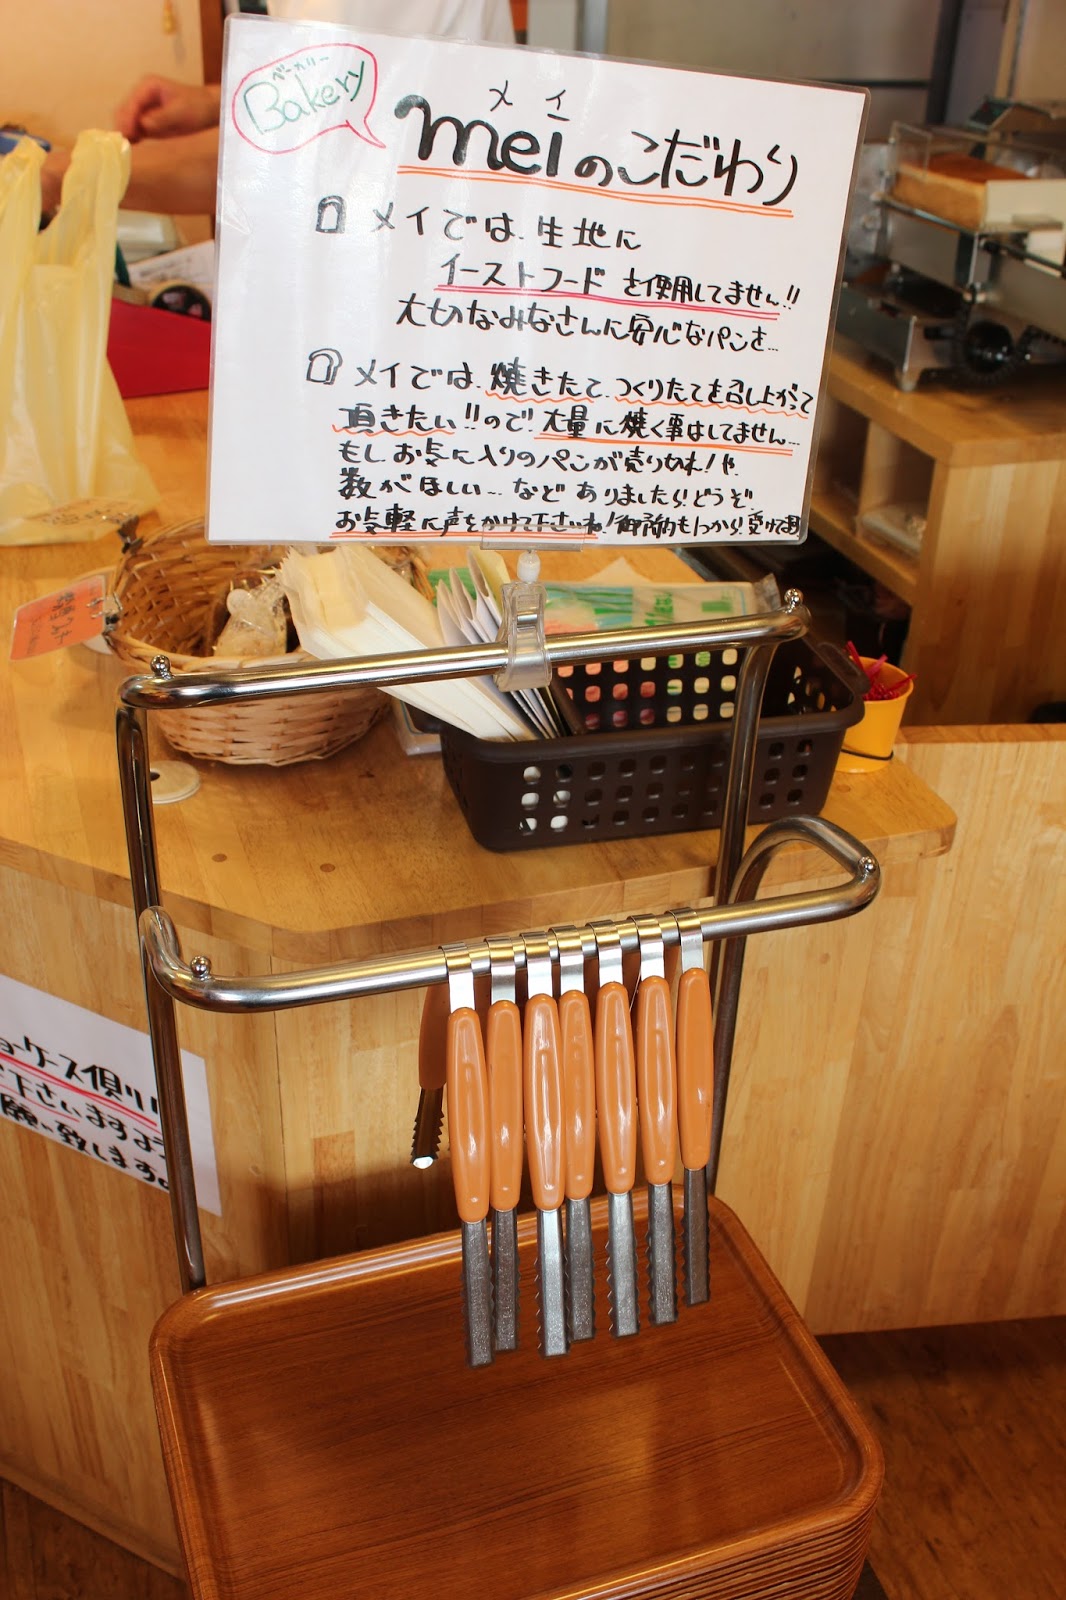 ベーカリー
Bakery
メイ
meiのこだわり
メイでは、生地に
イーストフードを使用してません!!
大切なみなさんに安心なパンを…
メイでは、焼きたて、つくりたてを召し上がって
頂きたい!!ので、大量に焼く事はしてません…
もしお気に入りのパンが売り切れ!や、
数がほしい…などありましたら!どうぞ、
お気軽に声をかけて下さいね!御予約も1つから!受けてます
ョーケース側に
下さいますよう
願い致します。